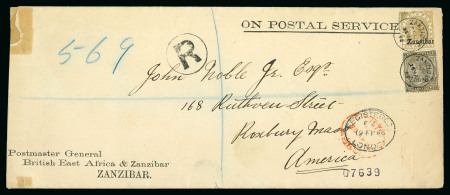 ON POSTAL SERVICE
Zanzibar
569
R
John Noble Jr. Esqre
168 Ruthven Street
Roxbury Mass
America
REGISTERED
LONDON
07639
Postmaster General
British East Africa & Zanzibar
ZANZIBAR.